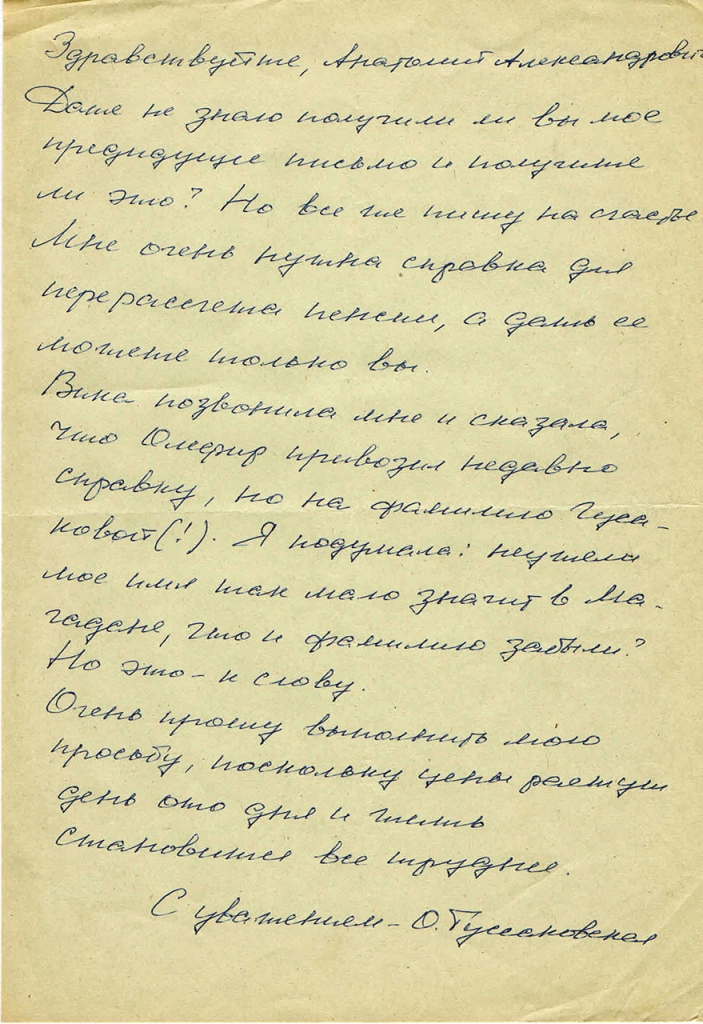 Здравствуйте, Анатолий Александрович
Даже не знаю получили ли вы мое
предидущее письмо и получите
ли это? Но все же пишу на счастье
Мне очень нужна справка для
перерасчета пенсии, а дать ее
можете только вы.
Вика позвонила мне и сказала,
что Олефир привозил недавно
справку, но на фамилию Гуса-
ковой(!). Я подумала: неужели
мое имя так мало значит в Ма-
гадане, что и фамилию забыли?
Но это - к слову.
Очень прошу выполнить мою
просьбу, поскольку цены растут
день ото дня и жить
становится все труднее.
С уважением - О. Гуссаковская